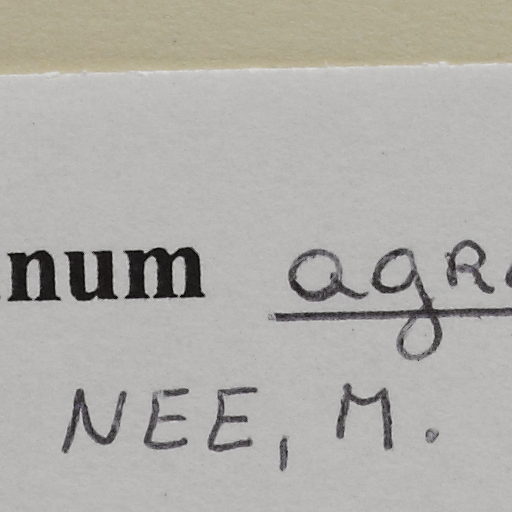 num agr
NEE, M.